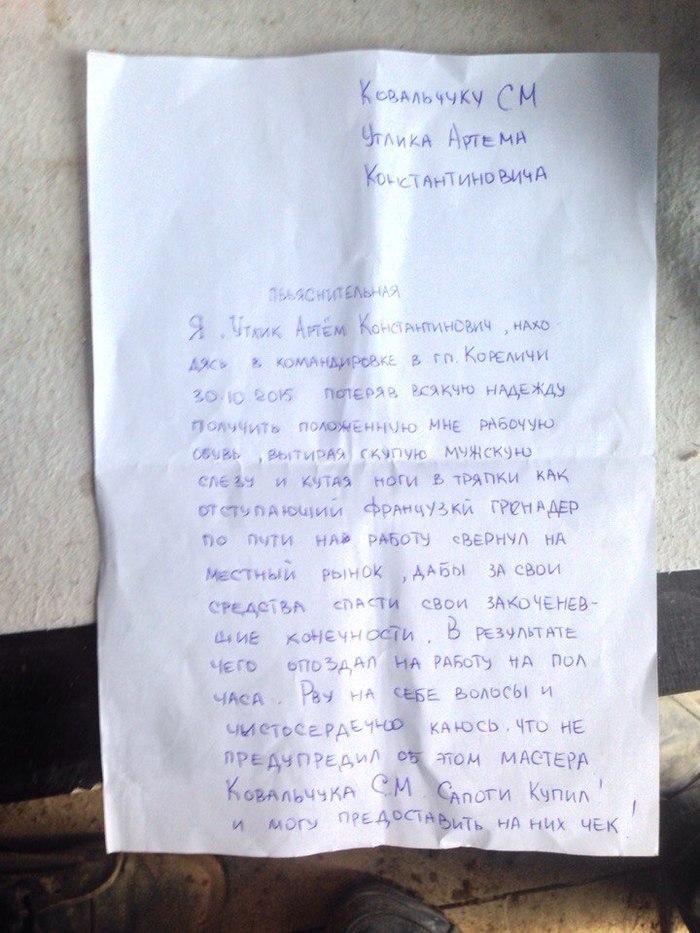 Ковальчуку СМ
Утлика Артема
Константиновича
Объяснительная
Я, Утлик Артём Константинович, нахо-
дясь в командировке в г.п. Кореличи
30.10 2015 потеряв всякую надежду
получить положенную мне рабочую
обувь, вытирая скупую мужскую
слезу и кутая ноги в тряпки как
отступающий французкй гренадер
по пути на работу свернул на
местный рынок, дабы за свои
средства спасти свои закоченев-
шие конечности. В результате
чего опоздал на работу на пол
часа. Рву на себе волосы и
чистосердечно каюсь, что не
предупредил об этом мастера
Ковальчука С.М. Сапоги купил!
и могу предоставить на них чек!